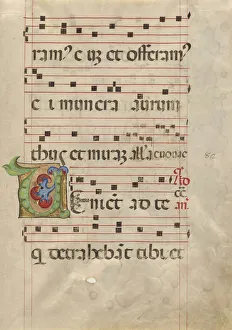 ramꝰ e uꝫ et offeramꝰ
e i munera aurum
thus et mirrã all'a euouae
Venient ad te
q̃ detrahebãt tibi et